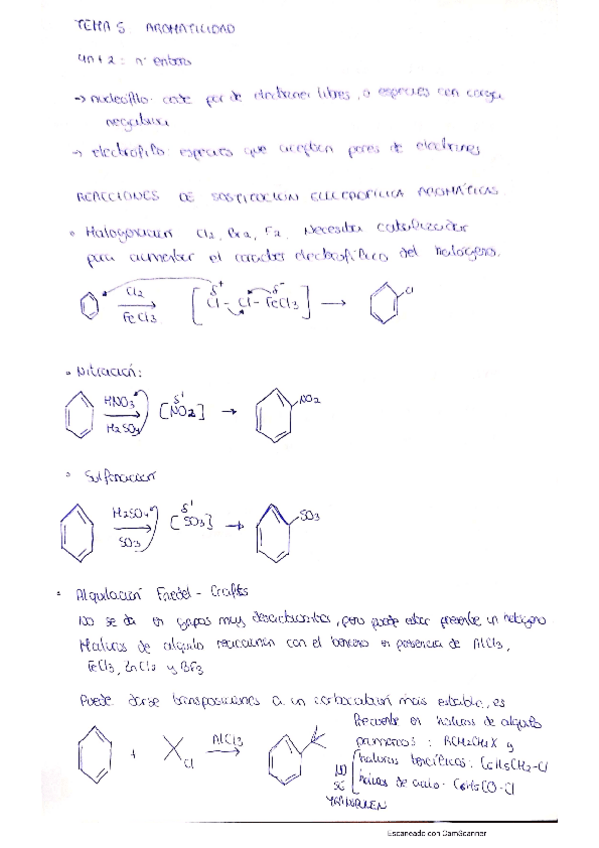 TEMA 5 AROMATICIDAD
4n+2: nº enteros
→ nucleófilo: cede par de electrones libres, o especies con carga
negativa
→ electrófilo: especies que aceptan pares de electrones
REACCIONES DE SUSTITUCION ELECTROFILICA AROMÁTICAS
• Halogenación Cl2, Br2, F2. Necesita catalizador
para aumentar el caracter electrofílico del halógeno.
Cl2
FeCl3
[Cl - Cl - FeCl3] →
δ+ δ-
Cl
• Nitración:
HNO3
H2SO4
[NO2] →
δ+
NO2
• Sulfonación
H2SO4
SO3
[SO3] →
δ+
SO3
• Alquilación Friedel - Crafts
No se da en grupos muy desactivantes, pero puede estar presente un halógeno
Haluros de alquilo reaccionan con el benceno en presencia de AlCl3,
FeCl3, ZnCl2 y BF3
Puede darse transposiciones a un carbocatión más estable, es
frecuente en haluros de alquilo
primarios: RCH2CH2X y
+
Cl
AlCl3
NO
SE
haluros bencílicos: C6H5CH2-Cl
de acido: C6H5CO-Cl
Escaneado con CamScanner